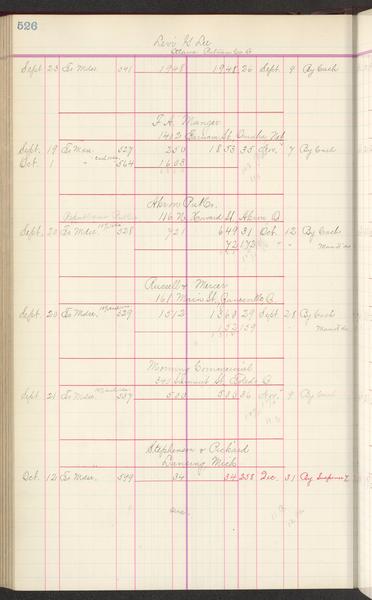 526
Levi K Lee
Ottawa Putnam Co O
Sept 23 To Mdse 541 1948 1948 26 Sept 9 By Cash
F. A. Manger
1412 Farnam St, Omaha Neb
Sept. 19 To Mdse. 527 250 1853 35 Nov. 7 By Cash
Oct. 1 " 564 1603
Akron Pub Co.
116 N. Howard St Akron O
Sept. 20 To Mdse. 528 721 649 31 Oct. 12 By Cash
72 172 " "
Russell & Mercer
161 Main St, Painesville, O.
Sept. 20 To Mdse. 529 1512 1360 29 Sept. 28 By Cash
152 159
Morning Commercial
St, Toledo O
Sept. 21 To Mdse. 537 500 500 36 Nov. 9 By Cash
Stephenson & Pickard
Lansing Mich
Oct. 12 To Mdse. 599 34 34 258 Dec. 31 By Suspense